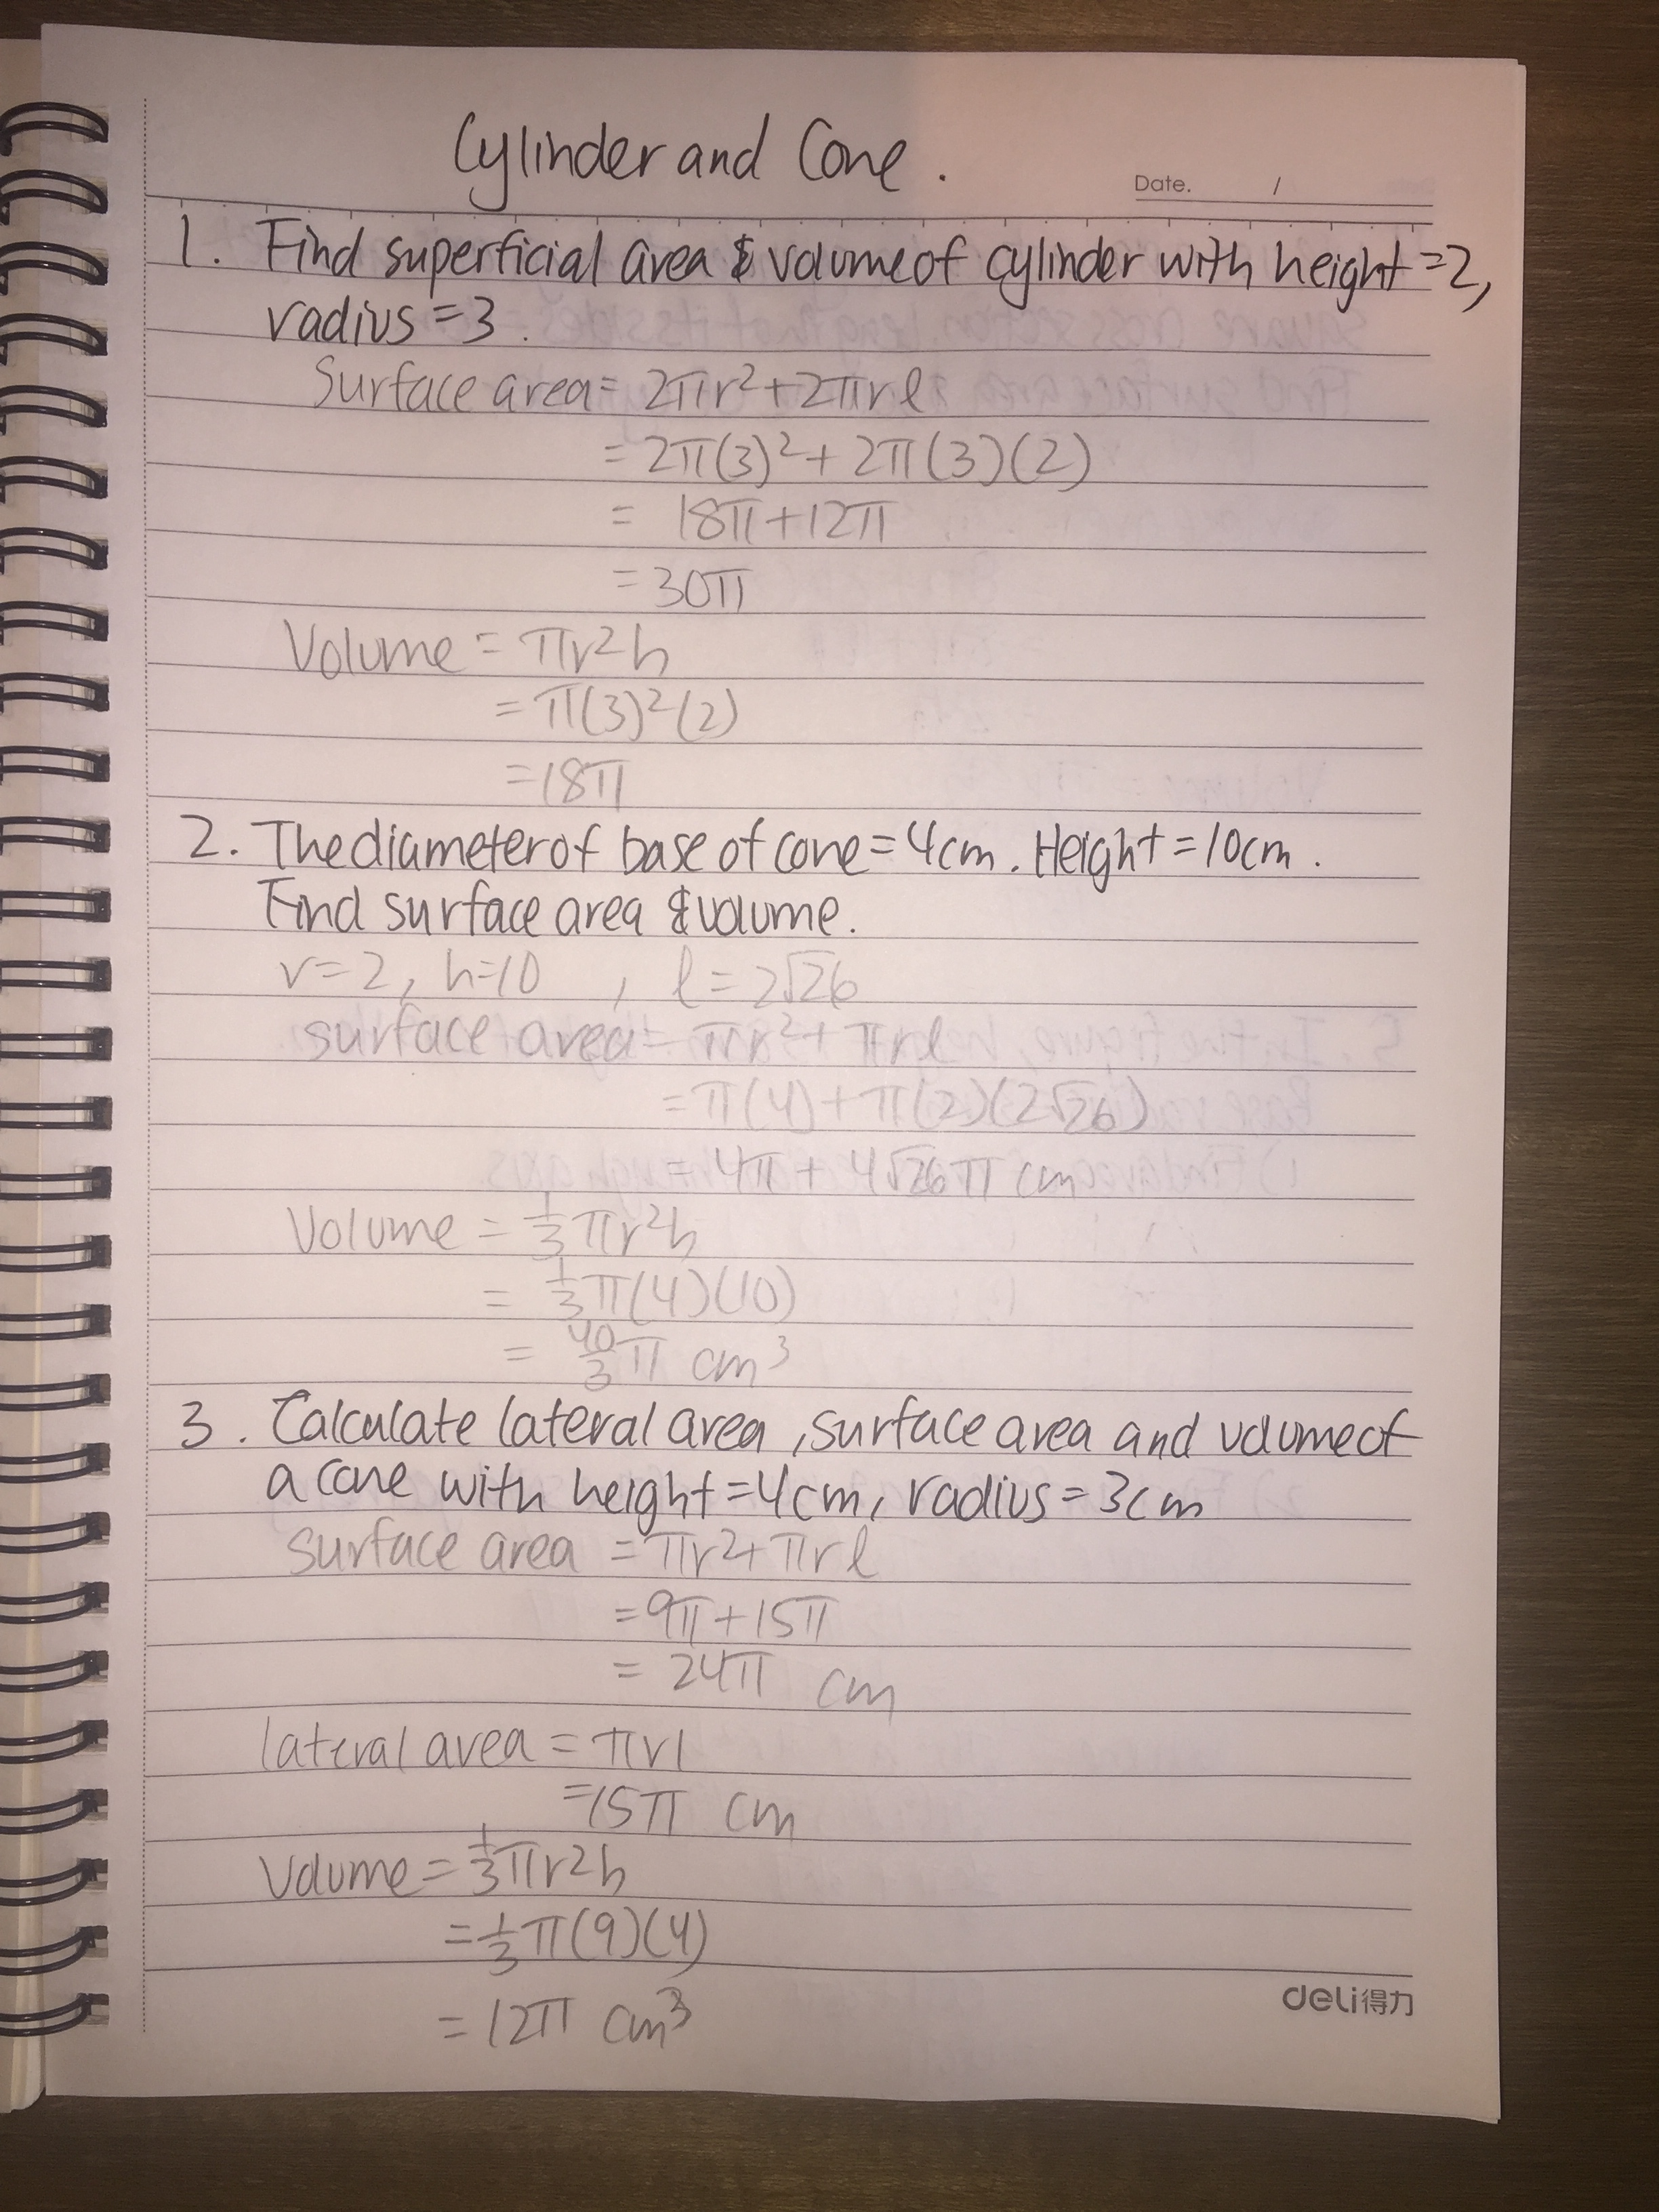 Cylinder and Cone.
Date. /
1. Find superficial area & volume of cylinder with height = 2,
radius = 3.
Surface area = 2πr² + 2πrl
= 2π(3)² + 2π(3)(2)
= 18π + 12π
= 30π
Volume = πr²h
= π(3)²(2)
= 18π
2. The diameter of base of cone = 4cm. Height = 10cm.
Find surface area & volume.
r = 2, h = 10 , l = 2√26
surface area = πr² + πrl
= π(4) + π(2)(2√26)
= 4π + 4√26π cm
Volume = 1/3 πr²h
= 1/3 π(4)(10)
= 40/3 π cm³
3. Calculate lateral area, surface area and volume of
a cone with height = 4cm, radius = 3cm
surface area = πr² + πrl
= 9π + 15π
= 24π cm
lateral area = πrl
= 15π cm
Volume = 1/3 πr²h
= 1/3 π(9)(4)
= 12π cm³
deli得力